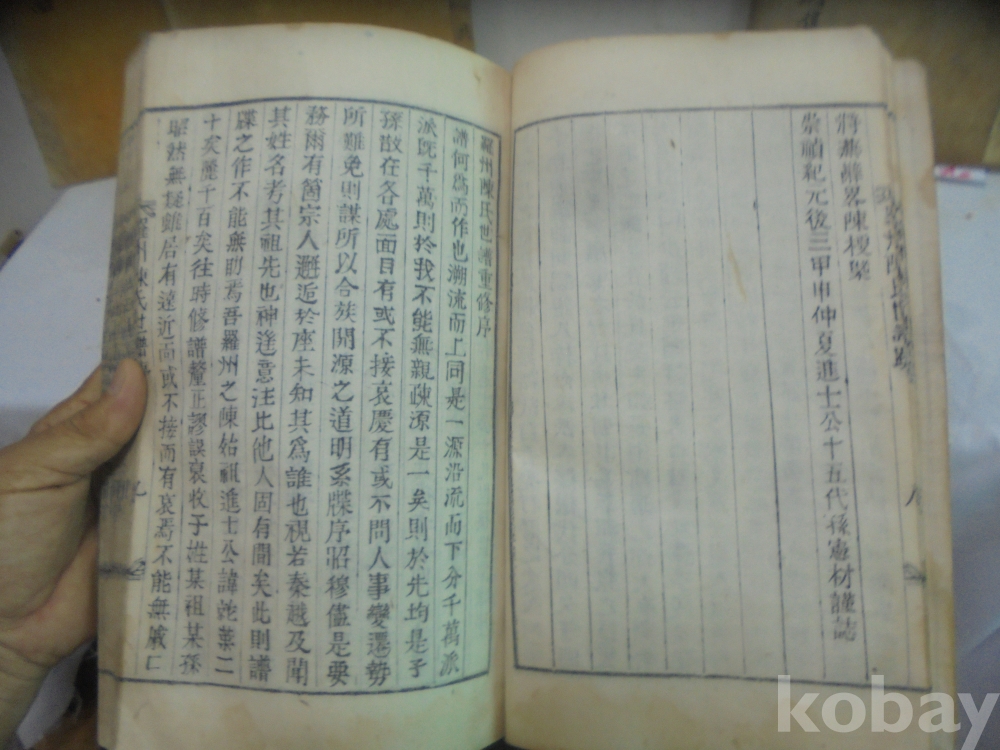 崇禎紀元後三甲申仲夏進士公十五代孫憲材謹誌
羅州陳氏世譜重修序
譜何爲而作也溯流而上同是一源沿流而下分千萬派
派旣千萬則於我不能無親疎源是一矣則於先均是子
孫散在各處面目有或不接哀慶有或不問人事變遷勢
所難免則謀所以合族開源之道明系牒序昭穆儘是要
務爾有箇宗人邂逅於座未知其爲誰也視若秦越及聞
其姓名考其祖先也神逢意注比他人固有間矣此則譜
牒之作不能無則焉吾羅州之陳始祖進士公諱
十矣麗千百矣往時修譜釐正謬誤裒收子姓某祖某孫
然無疑雖后有遠近面或不接而有哀焉不能無
kobay